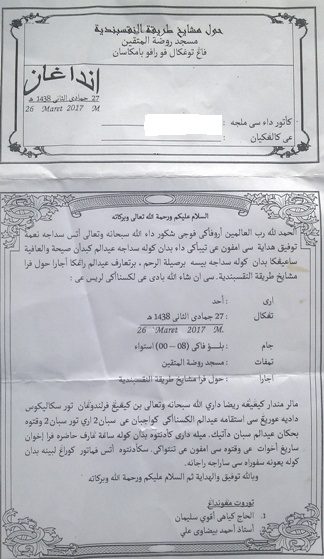 حول مشايخ طريقة النقسبندية
مسجد روضة المتقين
فاغ توغكال فو رافو بامكاسان
إنداغان
27 جمادى الثاني 1438 هـ
26 Maret 2017 M
كأتور داء سى ملجه :
عى كالفكيان :
السلام عليكم ورحمة الله تعالى وبركاته
الحمد لله رب العالمين أروفاكى فوجى شكور داء الله سبحانه وتعالى أتس سداجه نعمة
توفيق هداية سى امفون عى تيباكى داء بدان كوله سداجه عيدالم كبدأن صحة والعافية
ساغيفكا بدان كوله سداجه بيسه برصيلة الرحم ، برتعارف عيدالم رافكا أجارا حول فرا
مشايخ طريقة النقسبندية. سى ان شاء الله بادى عى لكسنأكى لريس عى :
ارى : أحد
تغكال : 27 جمادى الثاني 1438 هـ
26 Maret 2017 M.
جام : بلسؤ فاكى (08 – 00) استواء
تمفات : مسجد روضة المتقين
أجارا : حول فرا مشايخ طريقة النقسبندية
مالر مندار كيفيغفه ريضا دارى الله سبحانه وتعالى بن كيفيغ فرلندوغان تور سكاليكوس
داديه عوريغ سى استقامه عيدالم الكسنأكى كواجبان عى سبان2 ارى تور سبان2 وقتوه
بحكان عيدالم سبان دأتيك. ميله دارى كأدنتوه بدان كوله سأغة غارف حاضره فرا إخوان
ساريغ أخوات عى وقتوه سى امفون عى تنتواكى. سكأدنتوه أتس فهاتور كوراغ لبينه بدان
كوله يعونه سفوراه سى ساراجه راجانه.
وبالله توفيق والهداية ثم السلام عليكم ورحمة الله وبركاته
توروت مغونداغ
1. الحاج كياهى أفوي سليمان
2. أستاذ أحمد بيضاوي علي